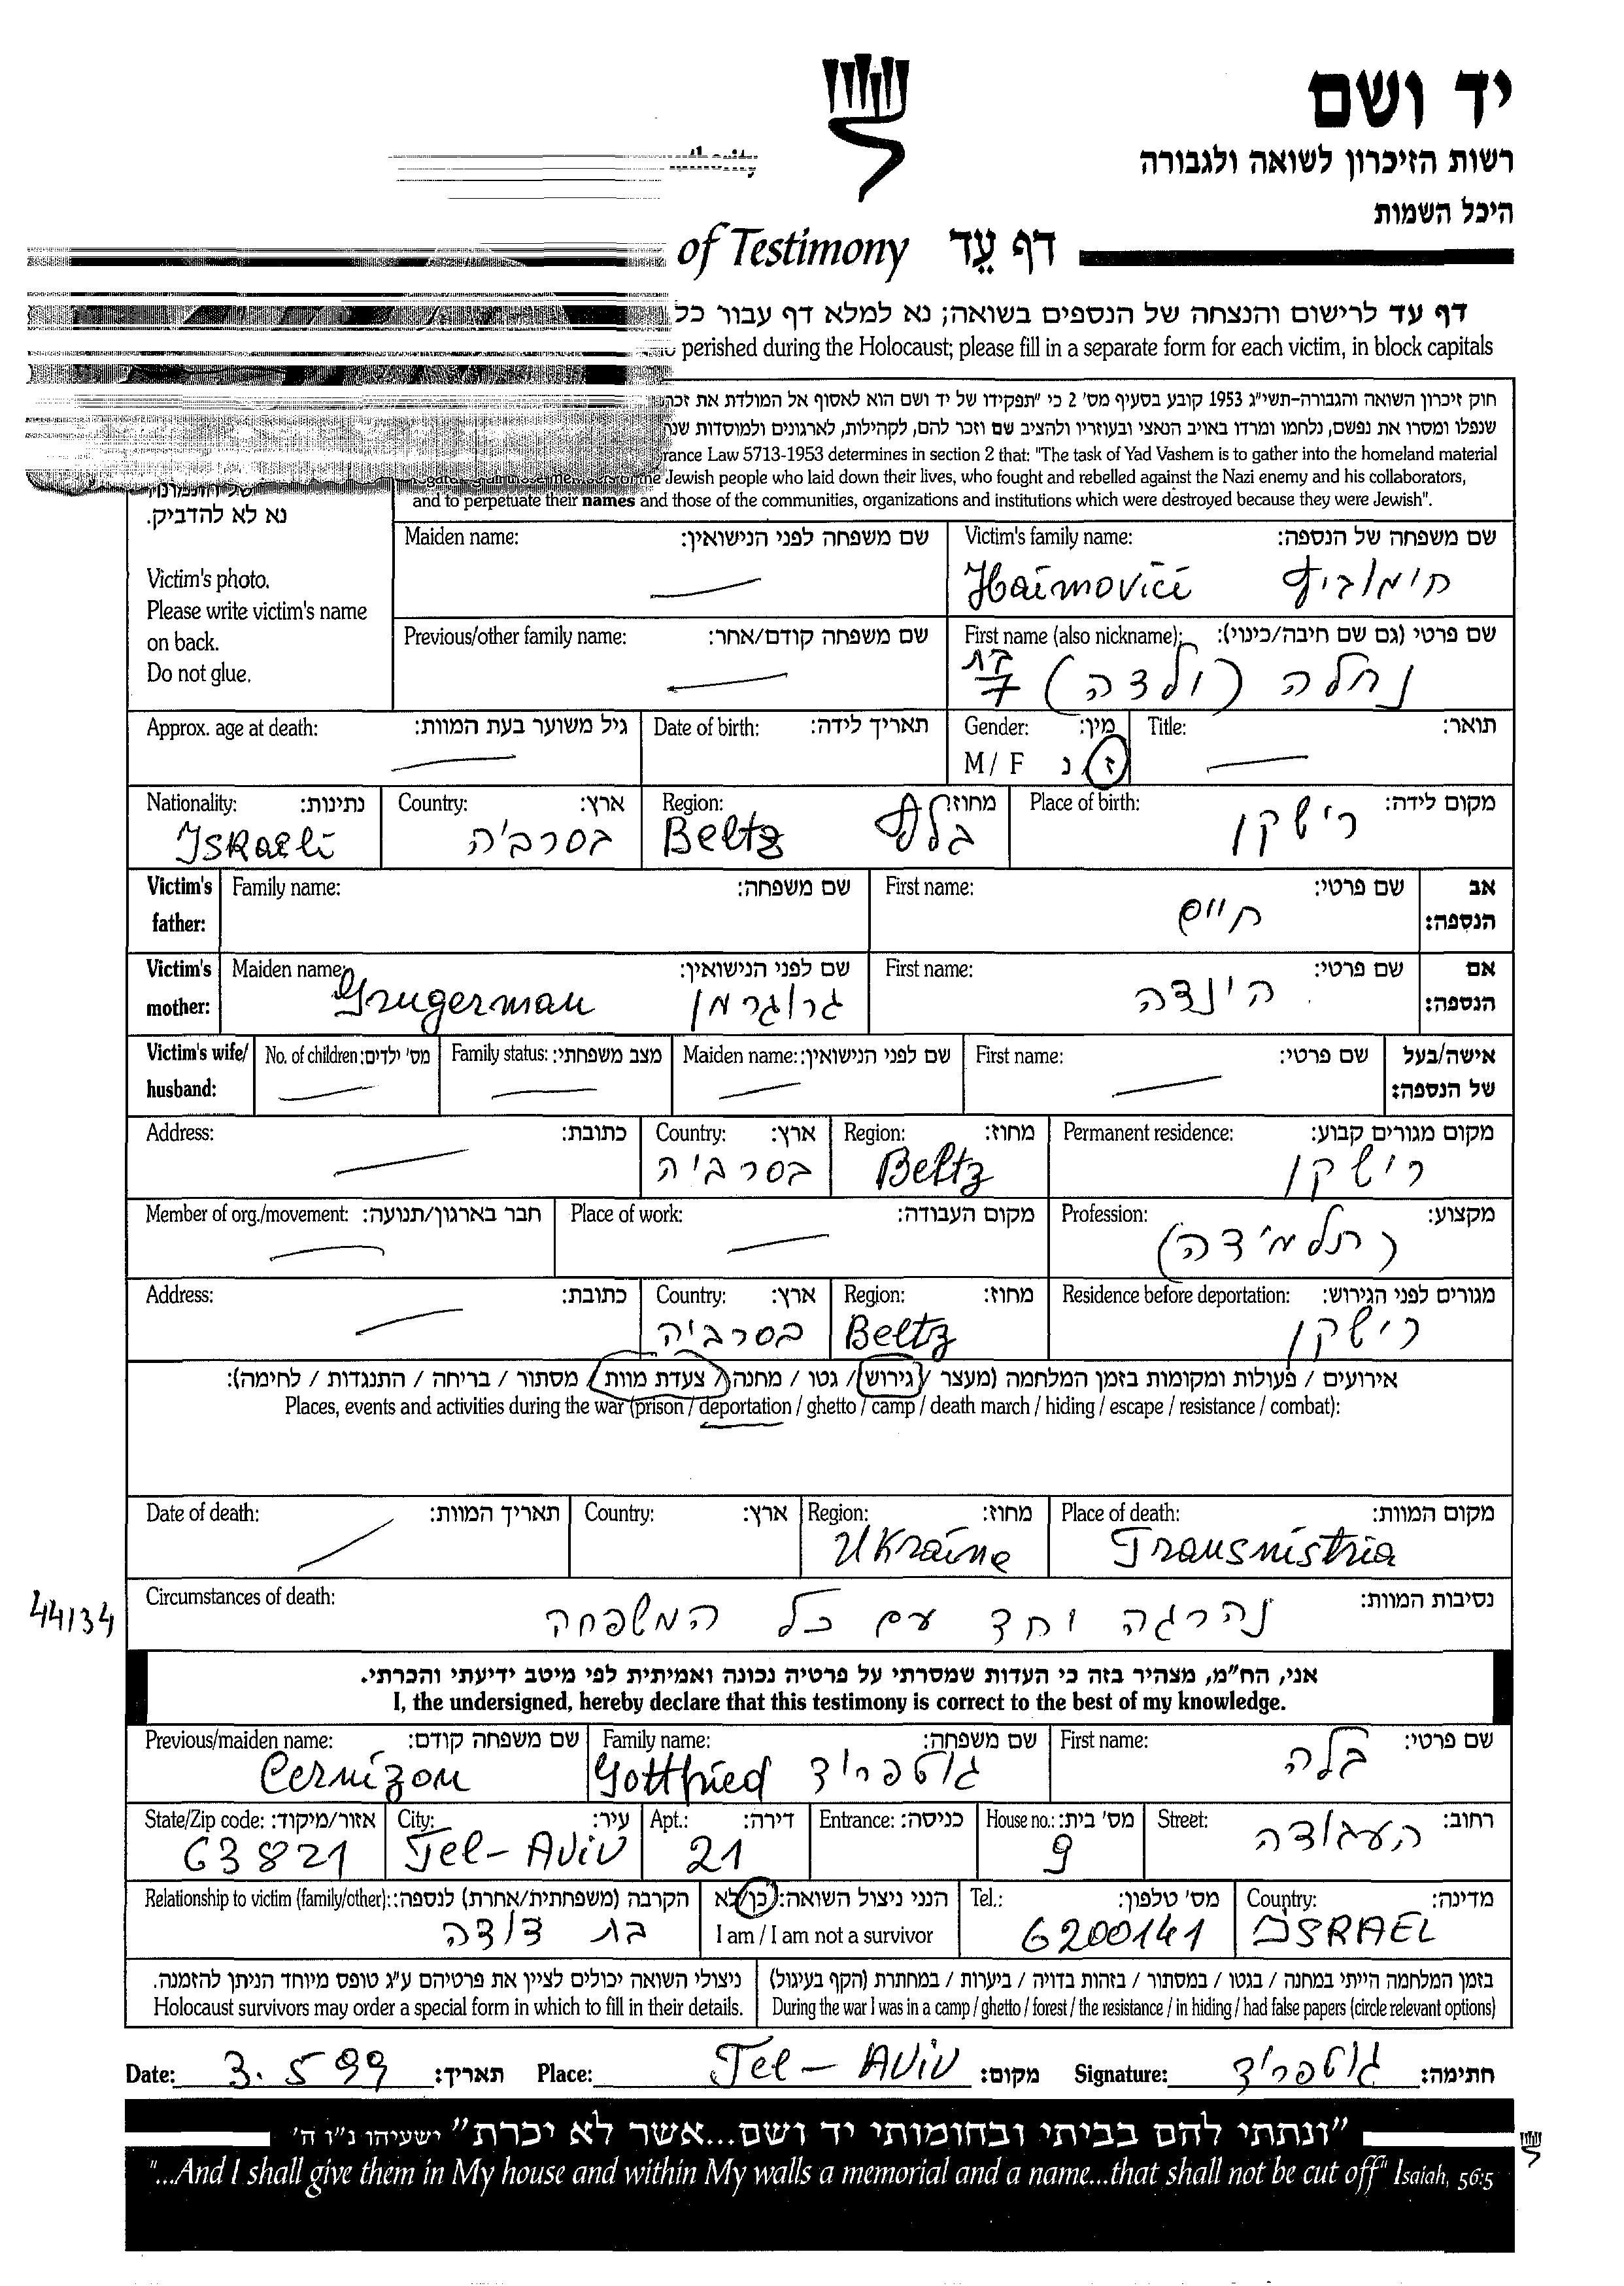 יד ושם
רשות הזיכרון לשואה ולגבורה
היכל השמות
of Testimony דף עֵד
דף עד לרישום והנצחה של הנספים בשואה; נא למלא דף עבור כל
perished during the Holocaust; please fill in a separate form for each victim, in block capitals
חוק זיכרון השואה והגבורה-תשי"ג 1953 קובע בסעיף מס' 2 כי "תפקידו של יד ושם הוא לאסוף אל המולדת את זכר
שנפלו ומסרו את נפשם, נלחמו ומרדו באויב הנאצי ובעוזריו ולהציב שם וזכר להם, לקהילות, לארגונים ולמוסדות
rance Law 5713-1953 determines in section 2 that: "The task of Yad Vashem is to gather into the homeland material
the Jewish people who laid down their lives, who fought and rebelled against the Nazi enemy and his collaborators,
and to perpetuate their names and those of the communities, organizations and institutions which were destroyed because they were Jewish".
נא לא להדביק.
Victim's photo.
Please write victim's name
on back.
Do not glue.
Maiden name: שם משפחה לפני הנישואין: Victim's family name: שם משפחה של הנספה:
Haimovici חימוביץ
Previous/other family name: שם משפחה קודם/אחר: First name (also nickname): שם פרטי (גם שם חיבה/כינוי):
נחלה (ולדה) בת 7
Approx. age at death: גיל משוער בעת המוות: Date of birth: תאריך לידה: Gender: מין: Title: תואר:
M / F ז / נ
Nationality: נתינות: Country: ארץ: Region: מחוז: Place of birth: מקום לידה:
Israeli בסרביה Beltz בלץ רישקן
Victim's father: Family name: שם משפחה: First name: שם פרטי: אב הנספה:
חיים
Victim's mother: Maiden name: שם לפני הנישואין: First name: שם פרטי: אם הנספה:
Grugerman גרוגרמן הינדה
Victim's wife/ husband: No. of children: מס' ילדים: Family status: מצב משפחתי: Maiden name: שם לפני הנישואין: First name: שם פרטי: אישה/בעל של הנספה:
Address: כתובת: Country: ארץ: Region: מחוז: Permanent residence: מקום מגורים קבוע:
בסרביה Beltz רישקן
Member of org./movement: חבר בארגון/תנועה: Place of work: מקום העבודה: Profession: מקצוע:
(תלמידה)
Address: כתובת: Country: ארץ: Region: מחוז: Residence before deportation: מגורים לפני הגירוש:
בסרביה Beltz רישקן
אירועים / פעולות ומקומות בזמן המלחמה (מעצר / גירוש / גטו / מחנה / צעדת מוות / מסתור / בריחה / התנגדות / לחימה):
Places, events and activities during the war (prison / deportation / ghetto / camp / death march / hiding / escape / resistance / combat):
Date of death: תאריך המוות: Country: ארץ: Region: מחוז: Place of death: מקום המוות:
Ukraine Transnistria
Circumstances of death: נסיבות המוות:
44134
נהרגה יחד עם כל המשפחה
אני, הח"מ, מצהיר בזה כי העדות שמסרתי על פרטיה נכונה ואמיתית לפי מיטב ידיעתי והכרתי.
I, the undersigned, hereby declare that this testimony is correct to the best of my knowledge.
Previous/maiden name: שם משפחה קודם: Family name: שם משפחה: First name: שם פרטי:
Cernizon Gottfried גוטפריד בלה
State/Zip code: אזור/מיקוד: City: עיר: Apt.: דירה: Entrance: כניסה: House no.: מס' בית: Street: רחוב:
63821 Tel-Aviv 21 9 העבודה
Relationship to victim (family/other): הקרבה (משפחתית/אחרת) לנספה: הנני ניצול השואה: כן/לא Tel.: מס' טלפון: Country: מדינה:
בת דודה I am / I am not a survivor 6200141 ISRAEL
ניצולי השואה יכולים לציין את פרטיהם ע"ג טופס מיוחד הניתן להזמנה. בזמן המלחמה הייתי במחנה / בגטו / במסתור / בזהות בדויה / ביערות / במחתרת (הקף בעיגול)
Holocaust survivors may order a special form in which to fill in their details. During the war I was in a camp / ghetto / forest / the resistance / in hiding / had false papers (circle relevant options)
Date: 3.5 99 תאריך: Place: Tel-Aviv מקום: Signature: גוטפריד חתימה:
"ונתתי להם בביתי ובחומותי יד ושם...אשר לא יכרת" ישעיהו נ"ו ה'
"...And I shall give them in My house and within My walls a memorial and a name...that shall not be cut off" Isaiah, 56:5